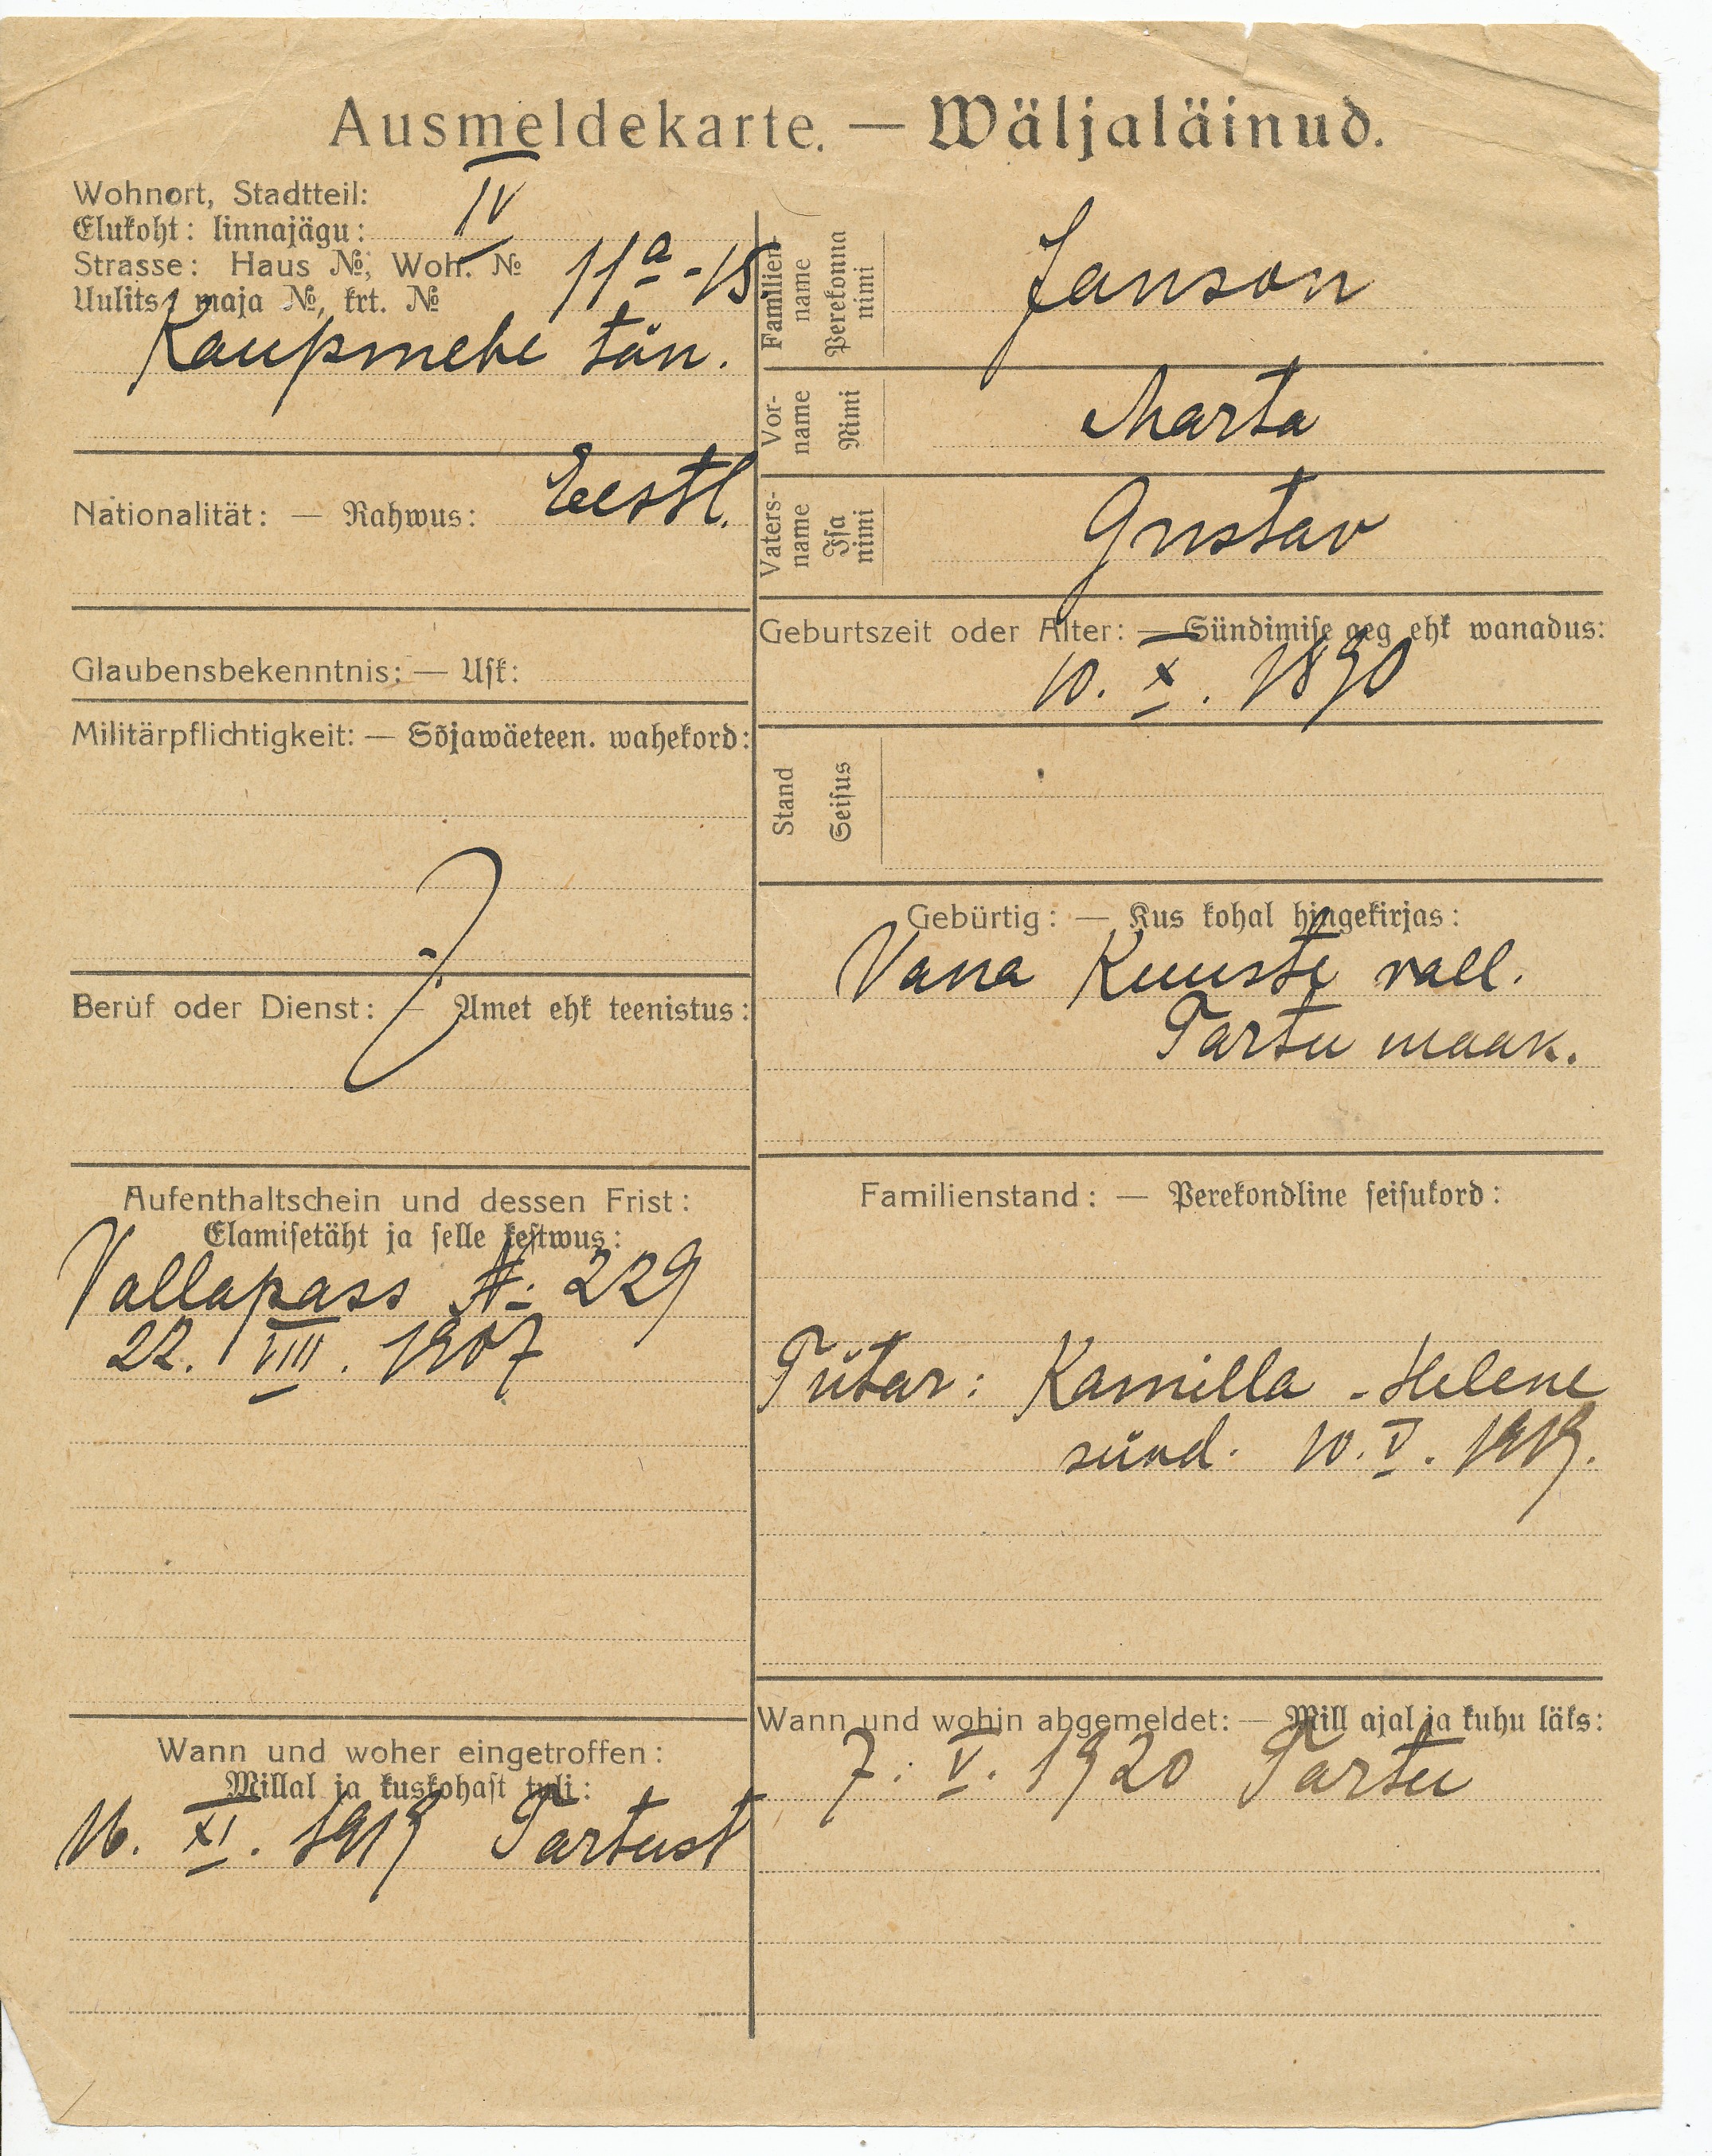 Ausmeldekarte. — Wäljaläinud.
Wohnort, Stadtteil:
Elukoht: linnajägu: IV
Strasse: Haus №, Woh. № 11a-15
Uulits, maja №, krt. №
Kaupmehe tän.
Nationalität: — Rahwus: Eestl.
Glaubensbekenntnis: — Usk:
Militärpflichtigkeit: — Sõjawäeteen. wahekord:
Beruf oder Dienst: — Amet ehk teenistus:
Aufenthaltschein und dessen Frist:
Elamisetäht ja selle kestwus:
Vallapass №: 229
22. VIII. 1907
Wann und woher eingetroffen:
Millal ja kuskohast tuli:
16. XI. 1919 Tartust
Familien-
name
Perekonna
nimi
Janson
Vor-
name
Nimi
Marta
Vaters-
name
Isa
nimi
Gustav
Geburtszeit oder Alter: — Sündimise aeg ehk wanadus:
10. X. 1890
Stand
Seisus
Gebürtig: — Kus kohal hingekirjas:
Vana Kuuste vall.
Tartu maak.
Familienstand: — Perekondline seisukord:
Tütar: Kamilla-Helene
sünd. 10. V. 1919.
Wann und wohin abgemeldet: — Mill ajal ja kuhu läks:
7. V. 1920 Tartu